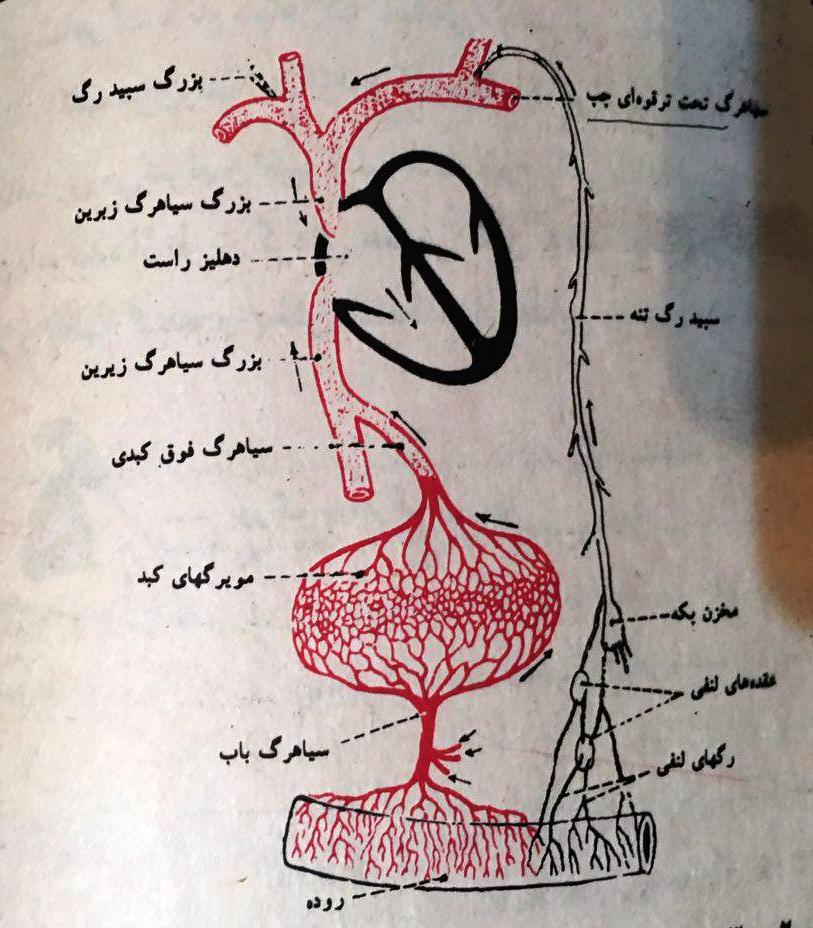 بزرگ سبید رگ
سیاهرگ تحت ترقوه‌ای چپ
بزرگ سیاهرگ زبرین
دهلیز راست
سبید رگ تنه
بزرگ سیاهرگ زیرین
سیاهرگ فوق کبدی
مویرگهای کبد
مخزن پکه
عقده‌های لنفی
سیاهرگ باب
رگهای لنفی
روده